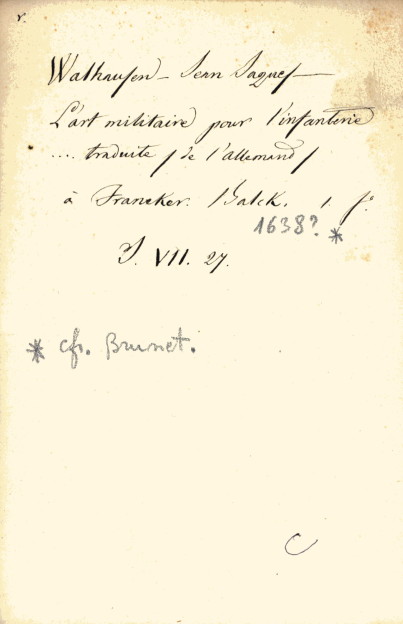 r.
Walhausen – Jean Jaques –
L'art militaire pour l'infanterie
.... traduite / de l'allemand /
à Francker. Balck. 1 f°
1638? *
J. VII. 27.
* cfr. Brunet.
C